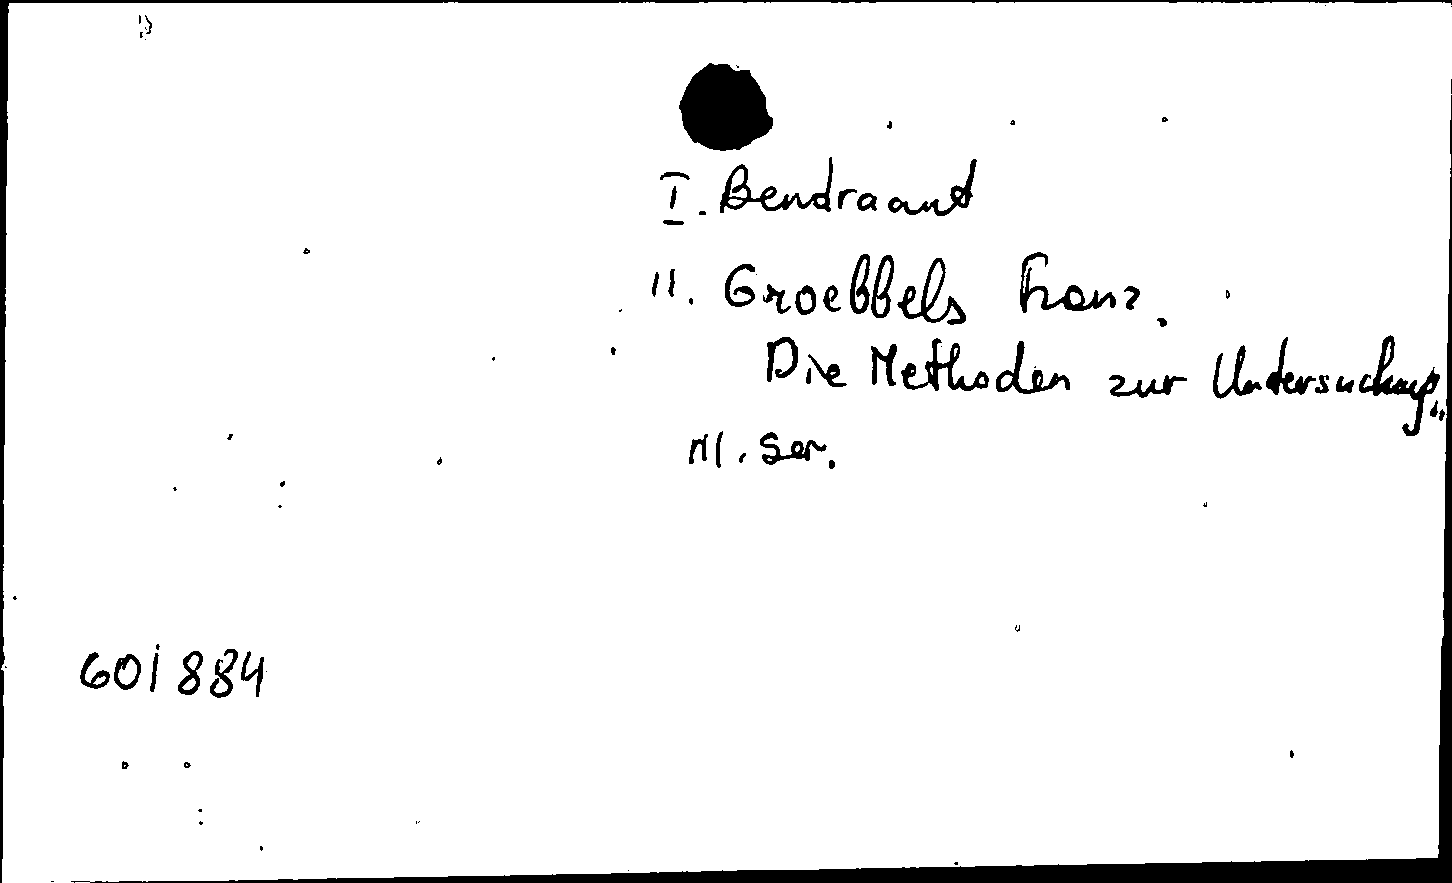 I. Bendraant
II. Groebbels Franz.
Die Methoden zur Untersuchung..
III. Ser.
601884